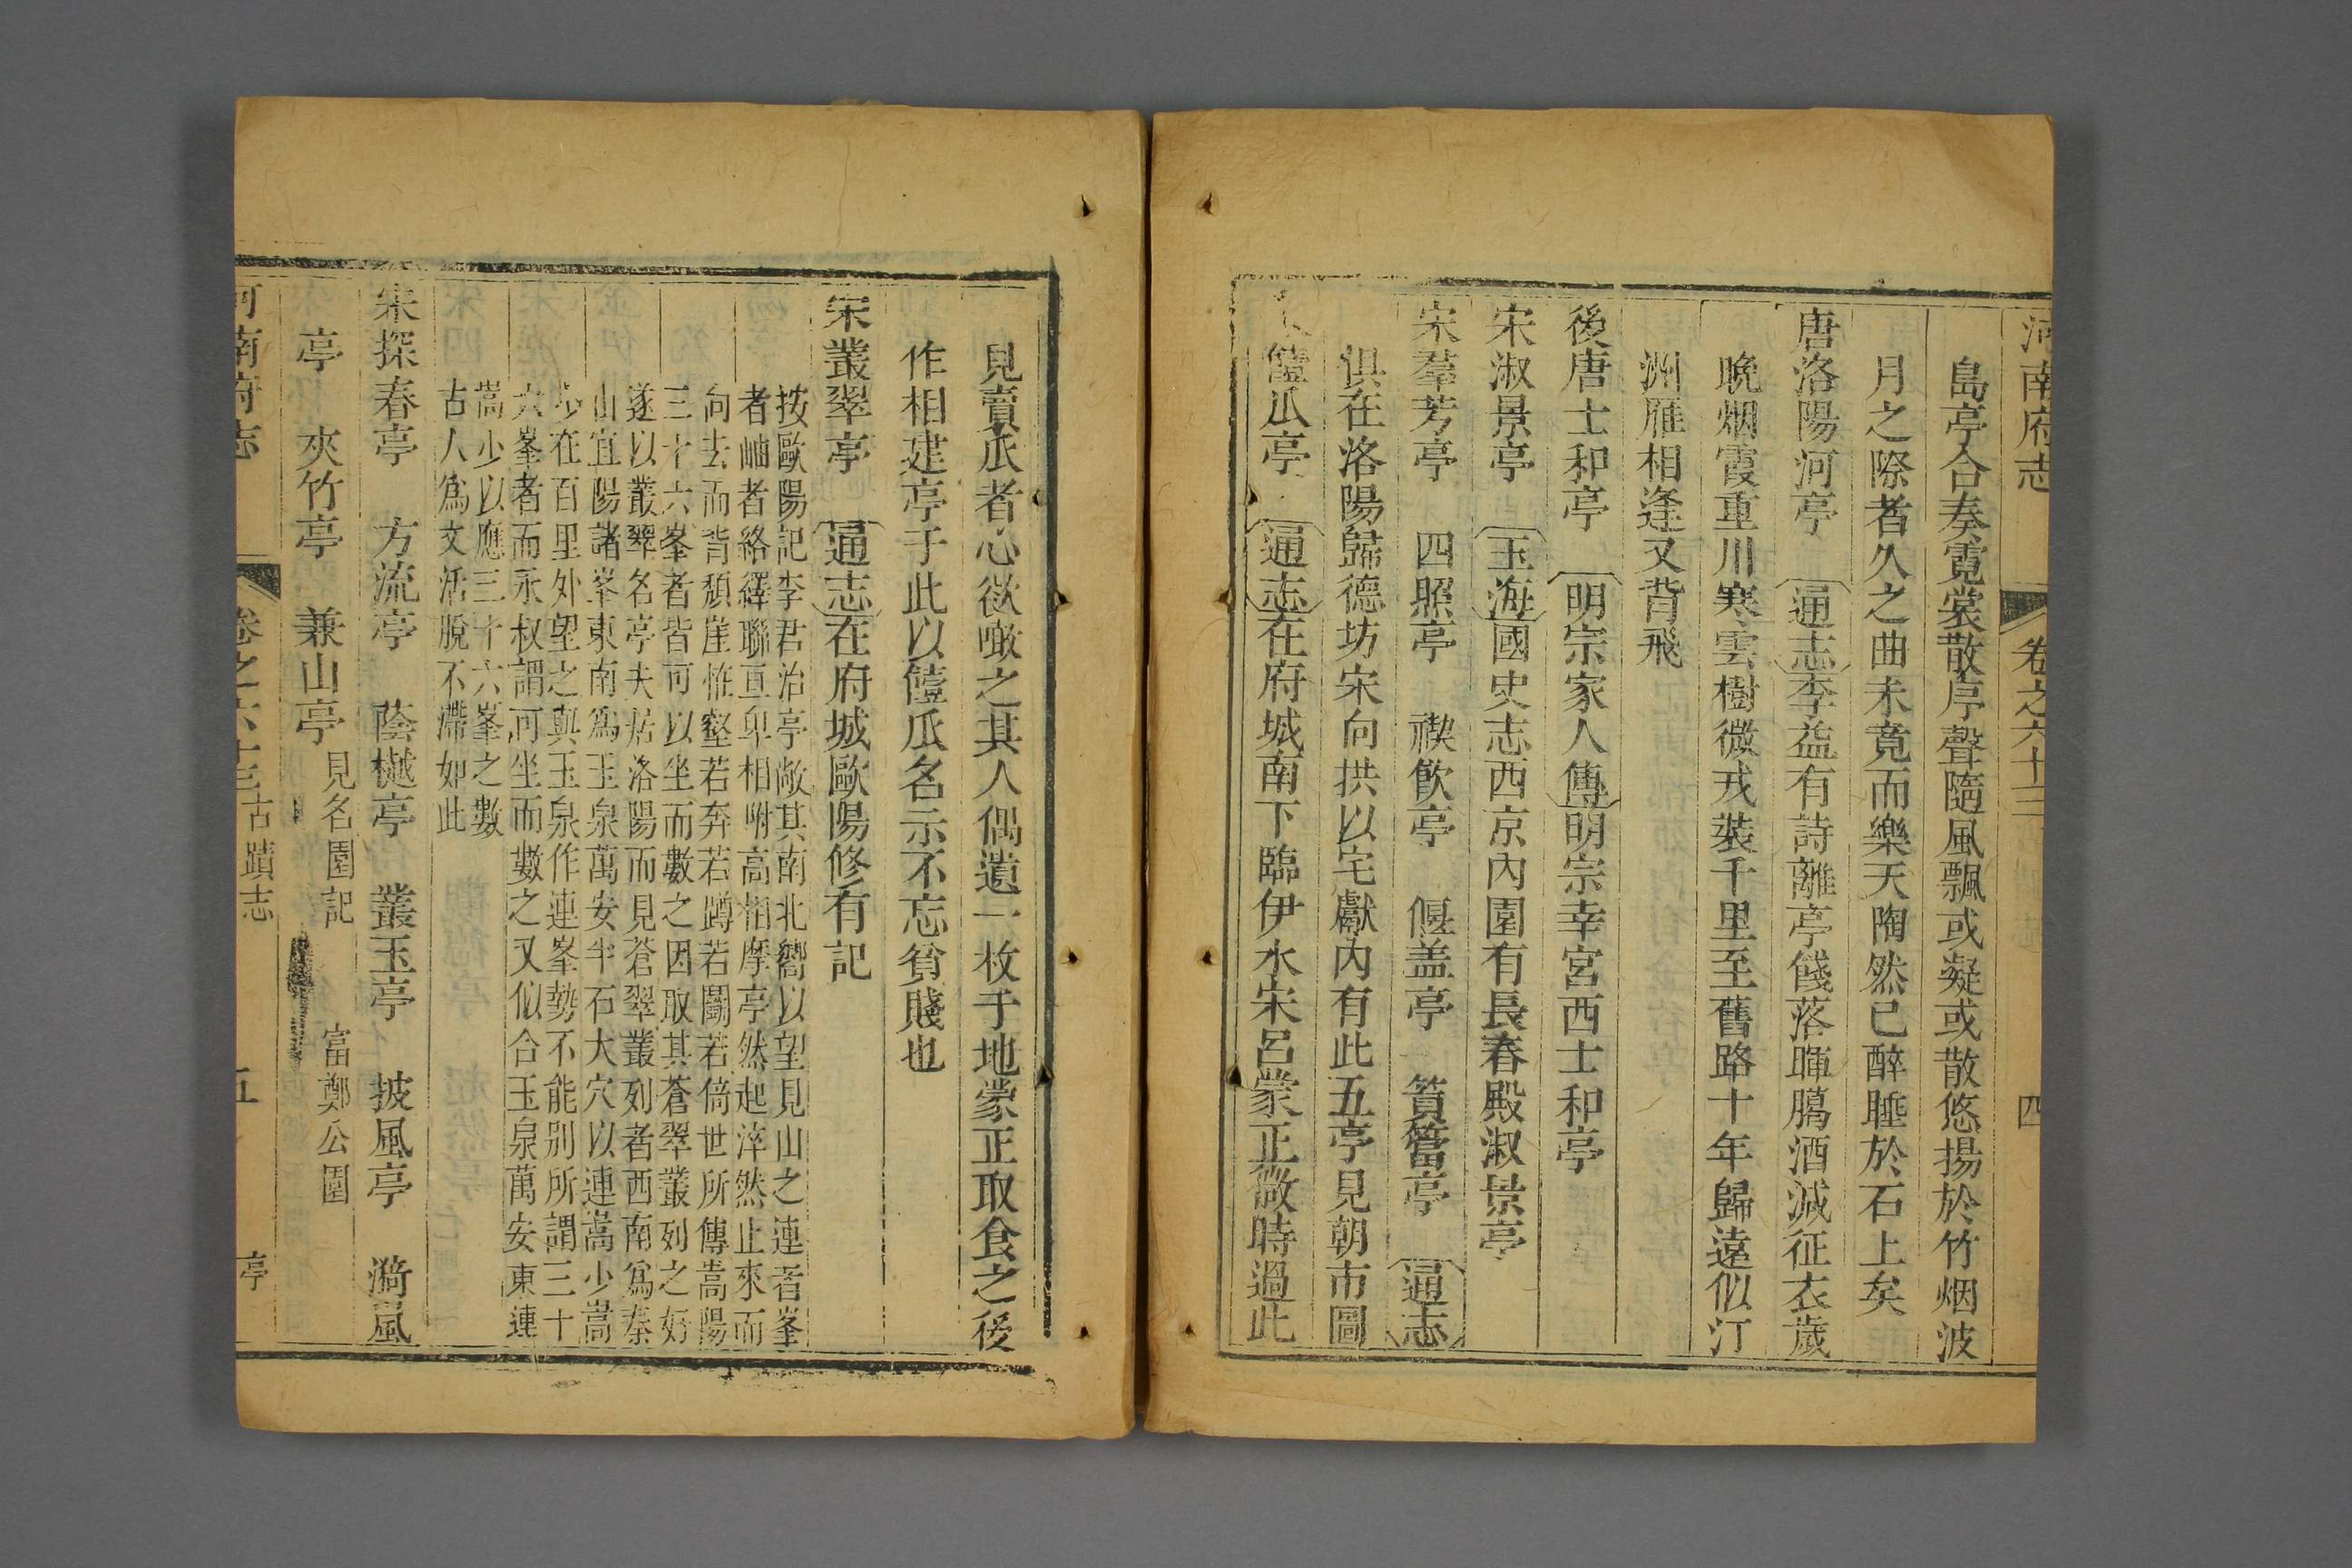 河南府志 卷之六十三 四
島亭合奏霓裳散序聲隨風飄或凝或散悠揚於竹烟波
月之際者久之曲未竟而樂天陶然已醉睡於石上矣
唐洛陽河亭 通志李益有詩離亭餞落暉臈酒減征衣歲
晩烟霞重川寒雲樹微戎裝千里至舊路十年歸遠似汀
洲雁相逢又背飛
後唐士和亭 明宗家人傳明宗幸宮西士和亭
宋淑景亭 玉海國史志西京內園有長春殿淑景亭
宋羣芳亭 四照亭 禊飲亭 偃盖亭 篔簹亭 通志
俱在洛陽歸德坊宋向拱以宅獻內有此五亭見朝市圖
饐瓜亭 通志在府城南下臨伊水宋呂蒙正微時過此
見賣瓜者心欲噉之其人偶遺一枚于地蒙正取食之後
作相建亭于此以饐瓜名示不忘貧賤也
宋叢翠亭 通志在府城歐陽修有記
按歐陽記李君治亭敞其南北嚮以望見山之連者峯
者岫者絡繹聯亘卑相咐高相摩亭然起淬然止來而
向去而背頹崖恠壑若奔若蹲若鬬若倚世所傳嵩陽
三十六峯者皆可以坐而數之因取其蒼翠叢列之好
遂以叢翠名亭夫居洛陽而見蒼翠叢列者西南爲秦
山宜陽諸峯東南爲玉泉萬安半石大穴以連嵩少嵩
少在百里外望之與玉泉作連峯勢不能別所謂三十
六峯者而永叔謂可坐而數之又似合玉泉萬安東連
嵩少以應三十六峯之數
古人爲文活脫不滯如此
宋探春亭 方流亭 蔭樾亭 叢玉亭 披風亭 漪嵐
亭 夾竹亭 兼山亭 見名園記 富鄭公園
河南府志 卷之六十三 古蹟志 五 亭